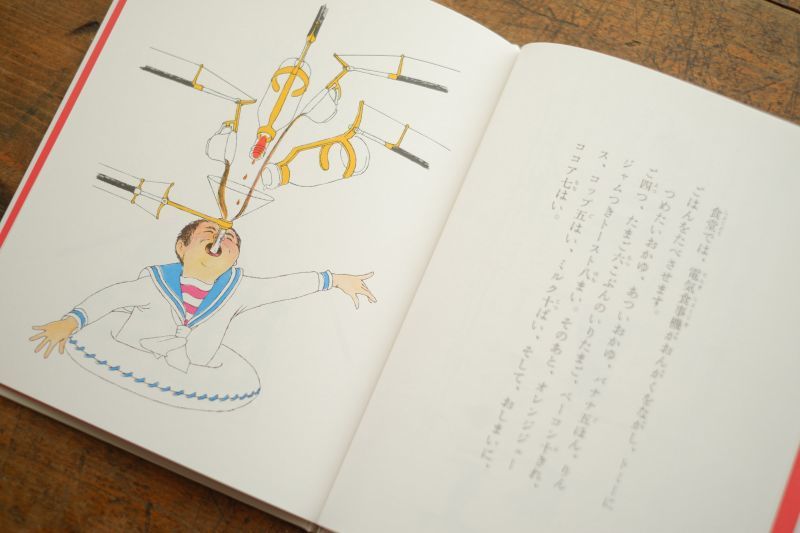 食堂では、電気食事機がおんがくをながし、トミーに
ごはんをたべさせます。
つめたいおかゆ、あついおかゆ、バナナ五ほん、りん
ご四つ、たまご六こぶんのいりたまご、ベーコン十きれ、
ジャムつきトースト八まい。そのあと、オレンジジュー
ス、コップ五はい、ミルク十ぱい、そして、おしまいに、
ココア七はい。